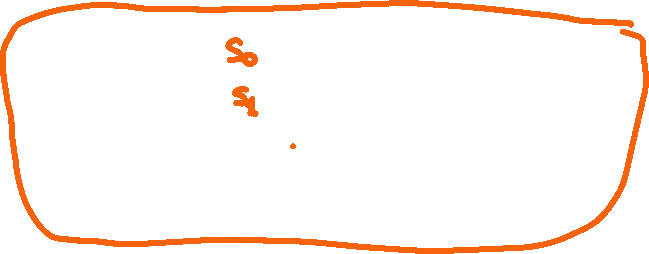 S0
S1